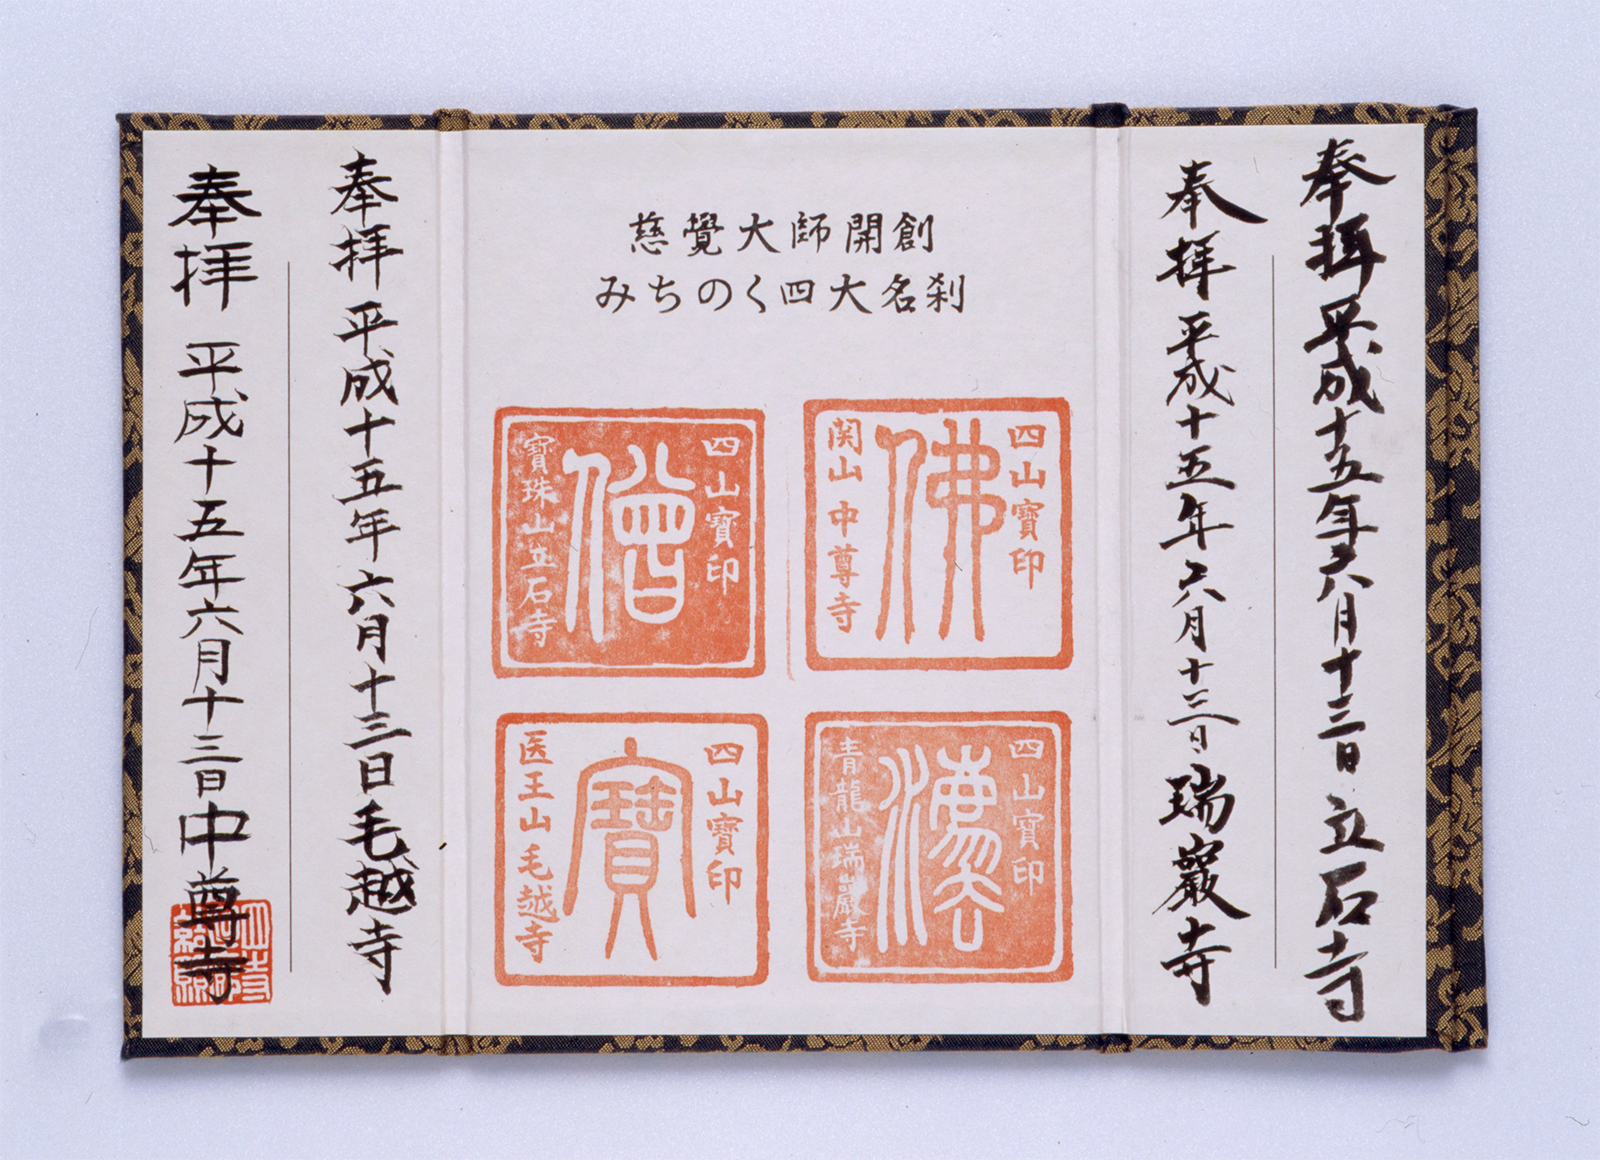 奉拝 平成十五年六月十三日 立石寺
奉拝 平成十五年六月十三日 瑞巖寺
慈覺大師開創
みちのく四大名刹
四山寶印
佛
関山 中尊寺
四山寶印
僧
寶珠山立石寺
四山寶印
青龍山瑞巖寺
四山寶印
寶
医王山毛越寺
奉拝 平成十五年六月十三日 毛越寺
奉拝 平成十五年六月十三日 中尊寺